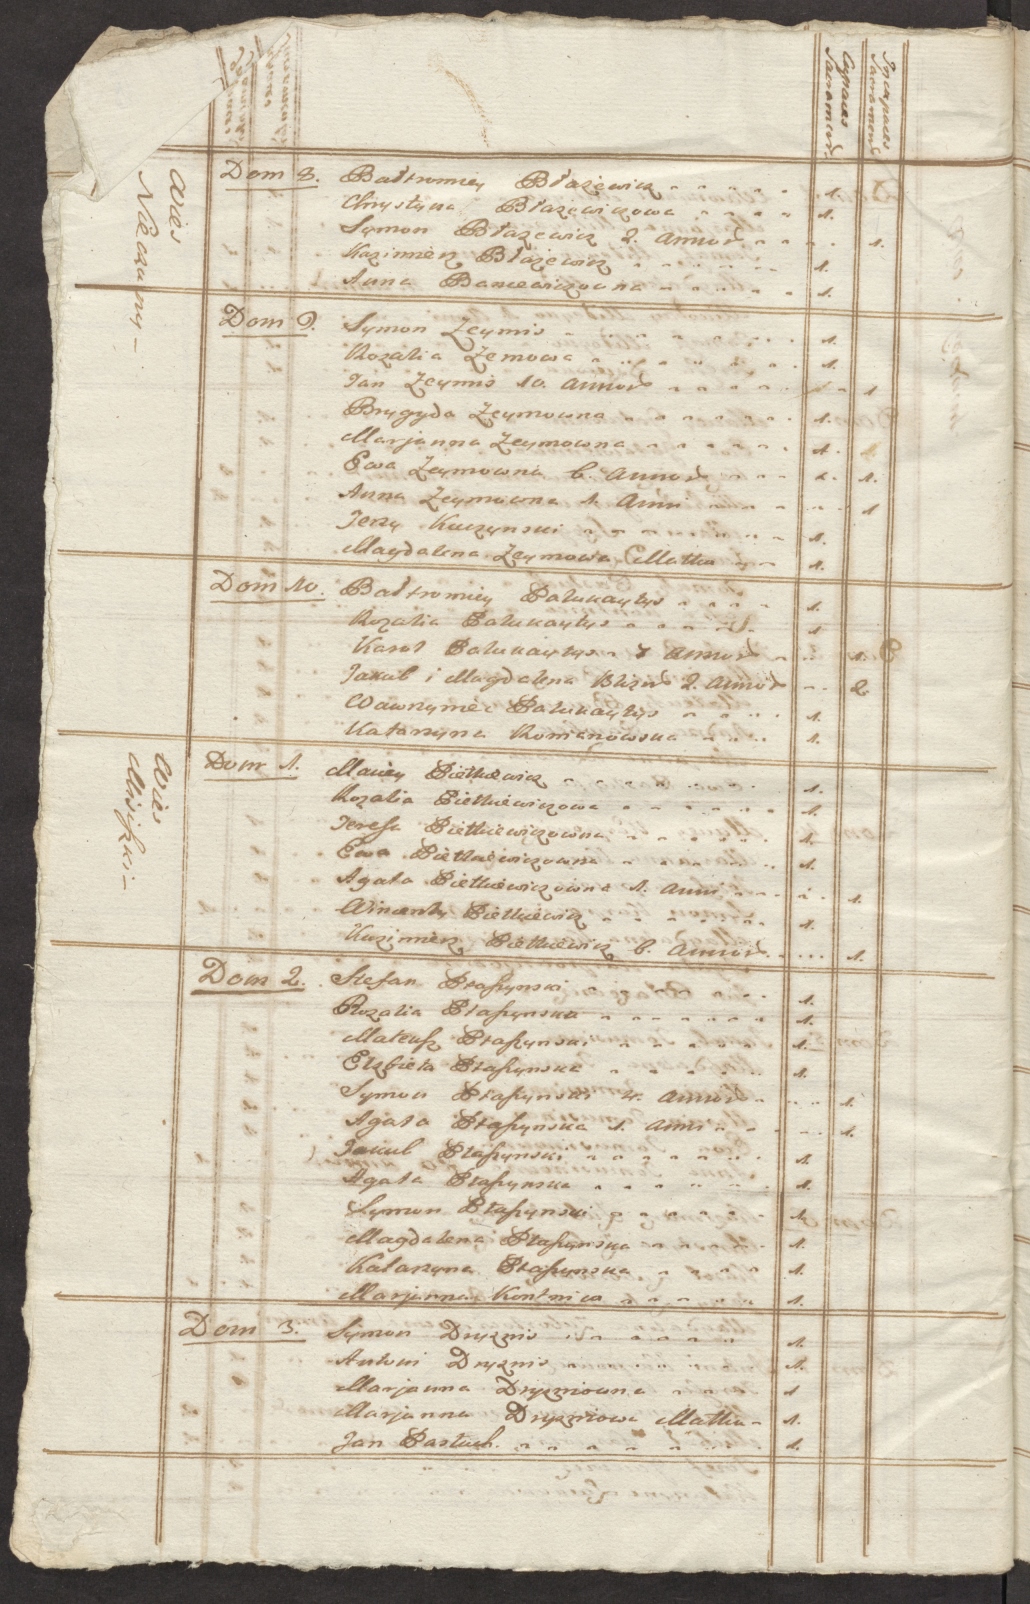 Capaces Sacrament.
Incapaces Sacrament.
Wies
Dom 8. Bałtromiey Błażewicz 1.
Chrystyna Błażewiczowa 1.
Symon Błażewicz 2. Annor 1.
Kazimierz Błażewicz 1.
Anna Baniewiczowna 1.
Dom 9. Symon Zeymis 1.
Rozalia Zemowa 1.
Jan Zeymis 10. Annor 1
Brygyda Zeymowna 1.
Marjanna Zeymowna 1.
Ewa Zeymowna 6. Annor 1.
Anna Zeymowna 1. Anni 1
Jerzy Kuczynski 1.
Magdalena Zeymowa Matka 1.
Dom 10. Bałtromiey Palukaytys 1.
Rozalia Palukaytys 1
Karol Palukaytys 7 Annor 1.
Jakub i Magdalena Blizn 2. Annor 2
Wawrzyniec Palukaytys 1.
Katarzyna Romanowska 1.
Wies
Dom 1. Maciey Pietkiewicz 1.
Rozalia Pietkiewiczowa 1.
Teresa Pietkiewiczowna 1.
Ewa Pietkiewiczowna 1.
Agata Pietkiewiczowna 1. Anni 1.
Wincenty Pietkiewicz 1.
Kazimierz Pietkiewicz 6. Annor. 1.
Dom 2. Stefan Ptaszynski 1.
Rozalia Ptaszynska 1.
Mateusz Ptaszynski 1.
Elzbieta Ptaszynska 1.
Symon Ptaszynski 4. Annor 1.
Agata Ptaszynska 1. Anni 1.
Jakub Ptaszynski 1.
Agata Ptaszynska 1.
Symon Ptaszynski 1.
Magdalena Ptaszynska 1.
Katarzyna Ptaszynska 1.
Marjanna Kontnica 1.
Dom 3. Symon Dryznis 1.
Antoni Dryznis 1.
Marjanna Dryzniowna 1
Marjanna Dryzniowa Matka 1.
Jan Pastuch. 1.